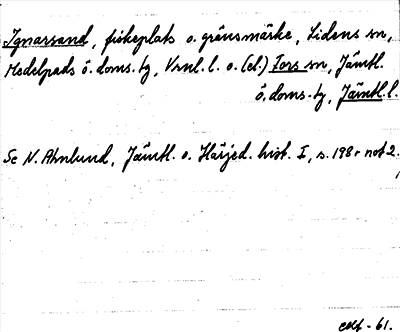 Ignarsand, fiskeplats o. gränsmärke, Lidens sn,
Medelpads ö. doms. tg, Vrnl. l. o. (el.) Fors sn, Jämtl.
ö. doms. tg, Jämtl. l.
Se N. Ahnlund, Jämtl. o. Härjed. hist. I, s. 198 r not 2.
-61.